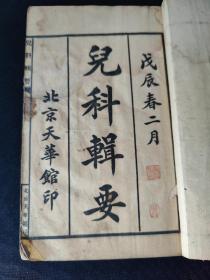 戊辰春二月
兒科輯要
北京天華館印